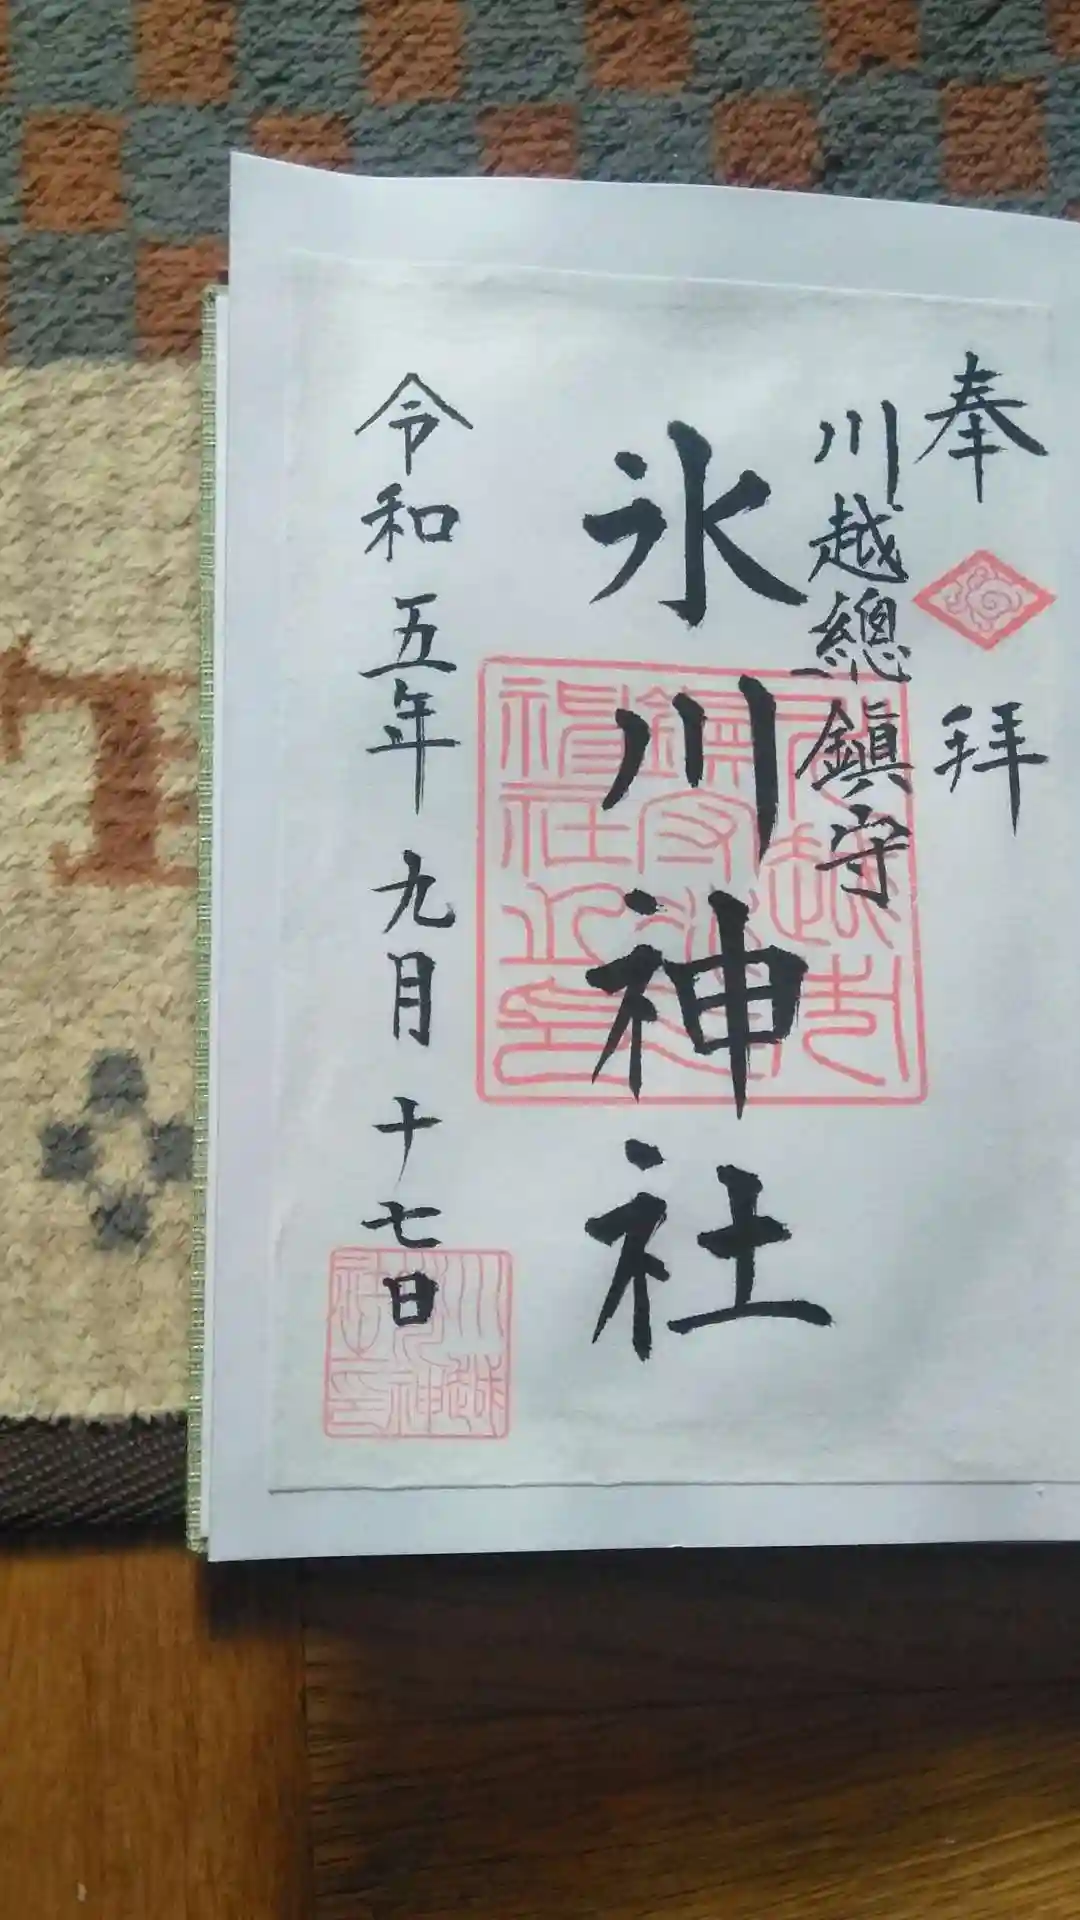 奉拜
川越總鎮守
氷川神社
令和五年九月十七日